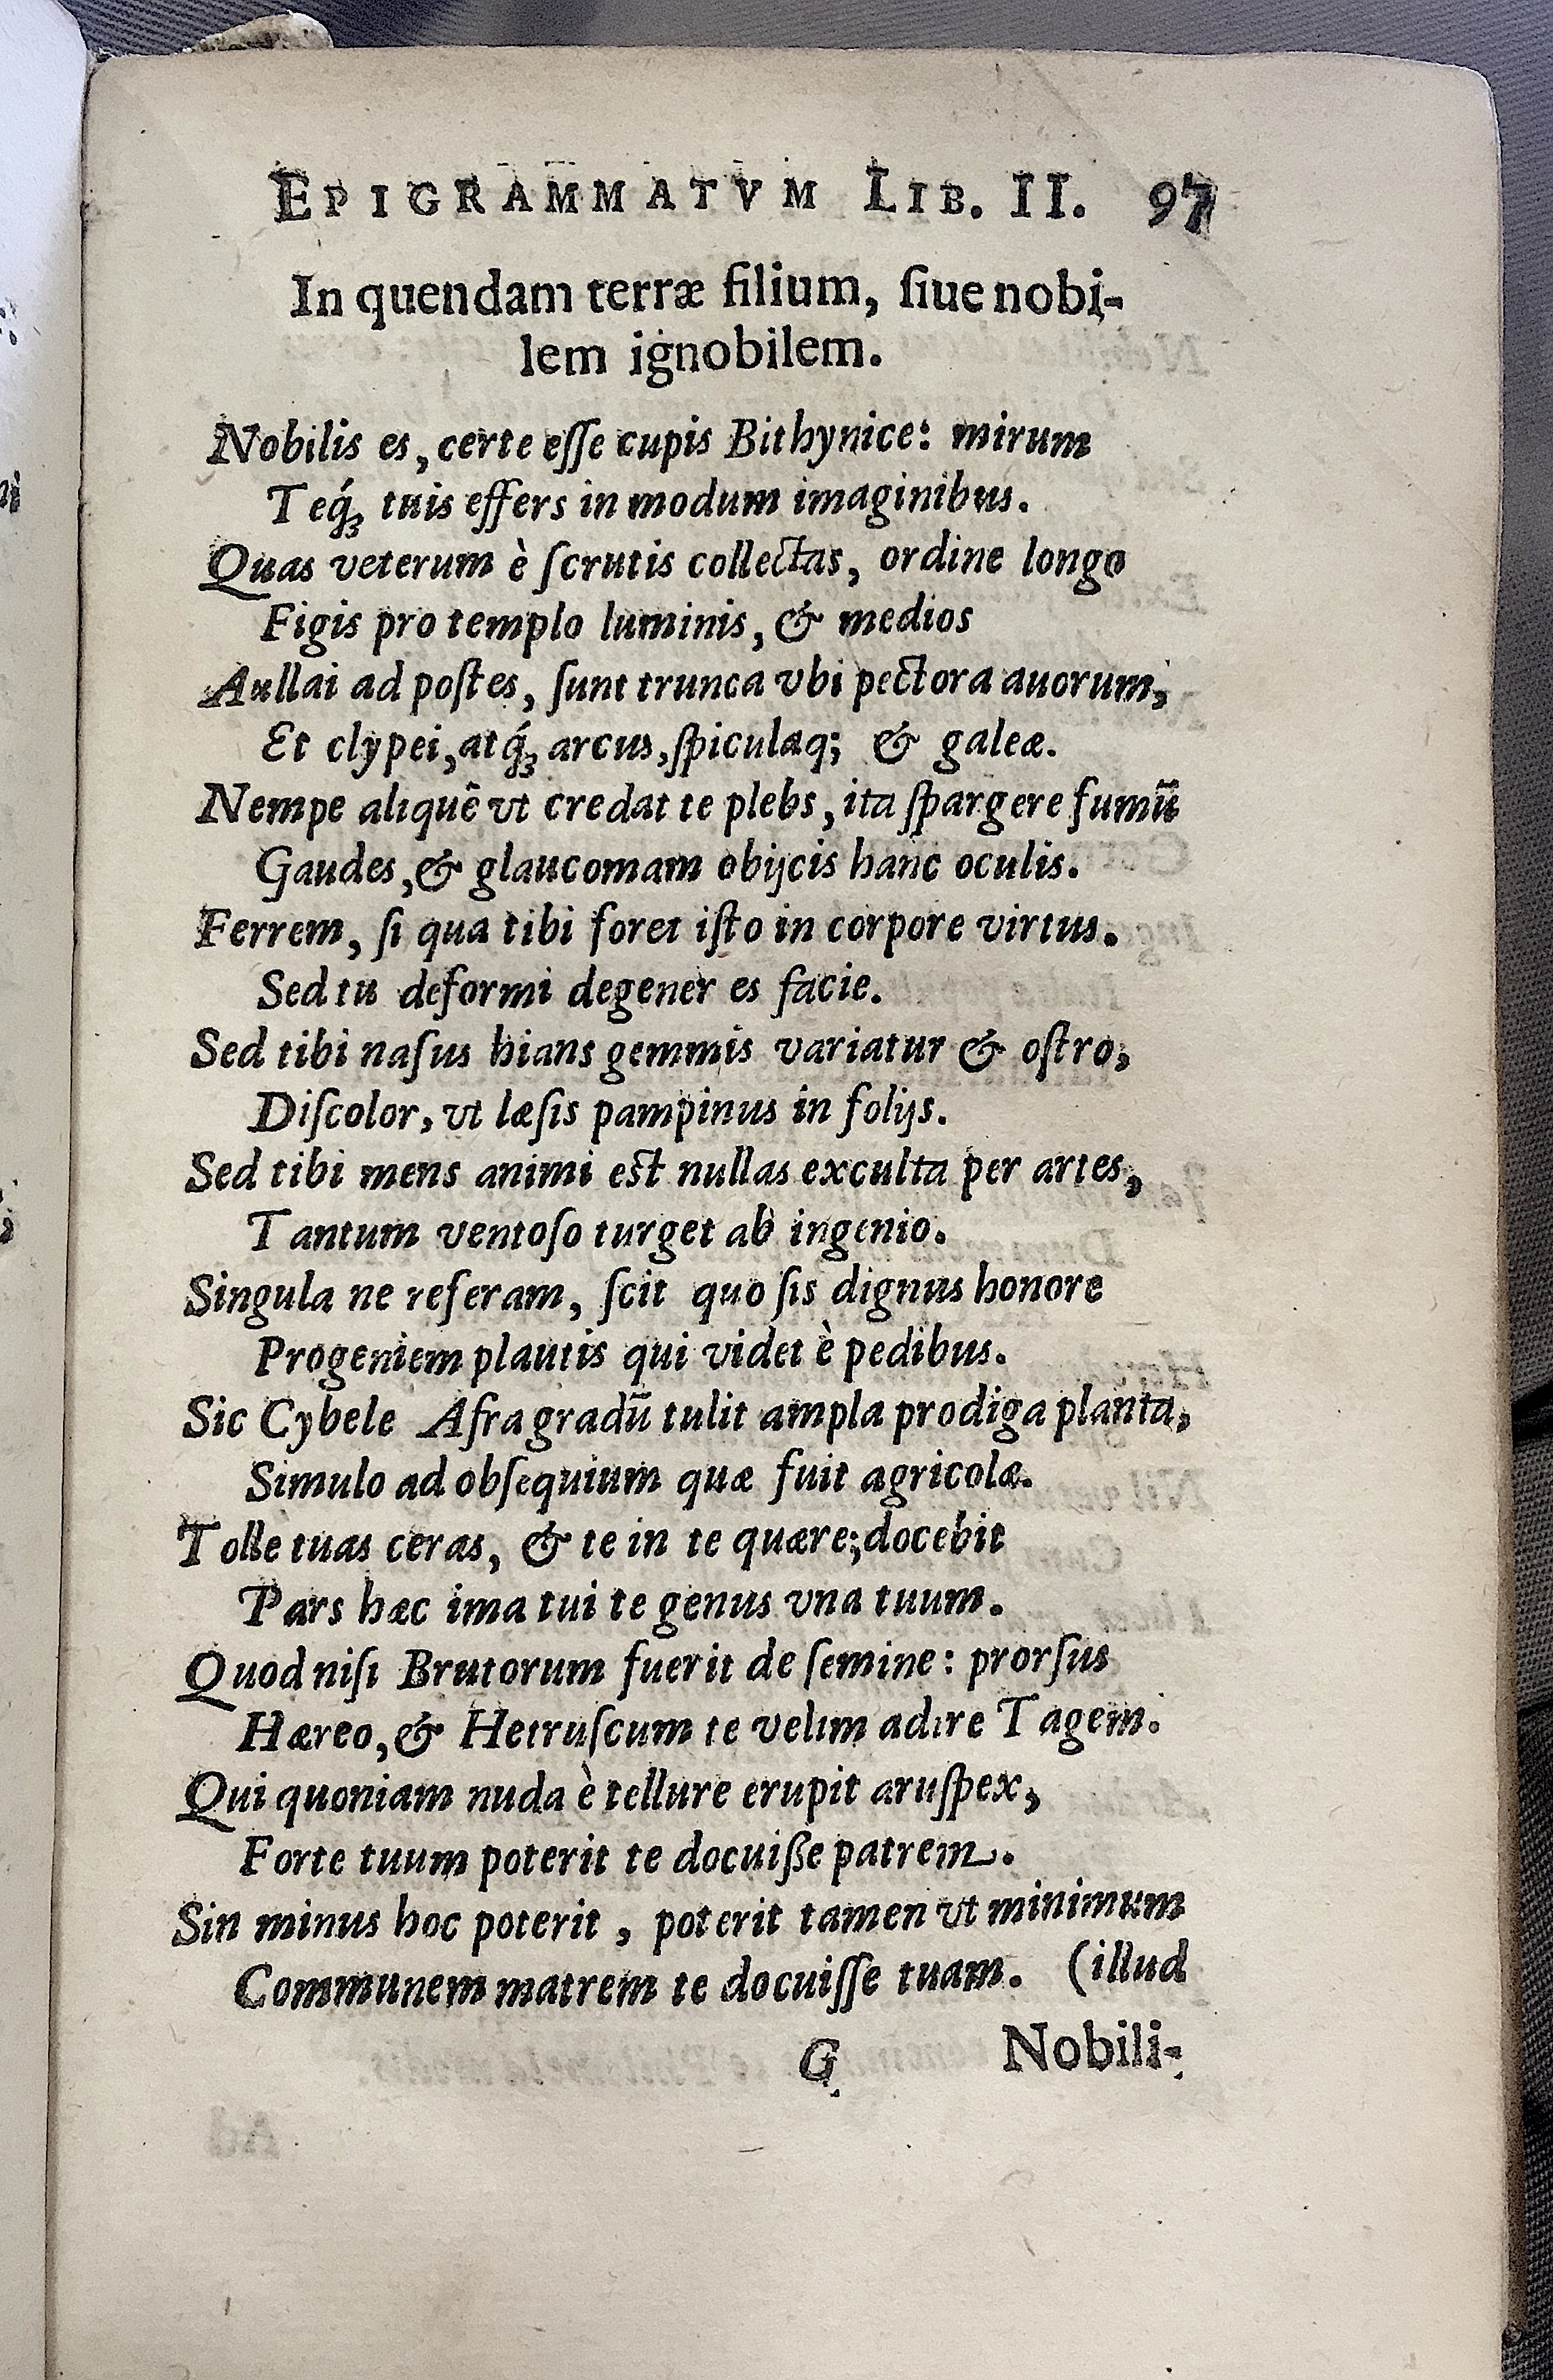 EPIGRAMMATVM LIB. II. 97
In quendam terræ filium, ſiue nobi-
lem ignobilem.
Nobilis es, certe eſſe cupis Bithynice: mirum
Teq́ꝫ tuis effers in modum imaginibus.
Quas veterum è ſcrutis collectas, ordine longo
Figis pro templo luminis, & medios
Aullai ad poſtes, ſunt trunca vbi pectora auorum,
Et clypei, atq́ꝫ arcus, ſpiculaq; & galeæ.
Nempe aliquē vt credat te plebs, ita ſpargere fumū
Gaudes, & glaucomam obijcis hanc oculis.
Ferrem, ſi qua tibi foret iſto in corpore virtus.
Sed tu deformi degener es facie.
Sed tibi naſus hians gemmis variatur & oſtro,
Diſcolor, vt læſis pampinus in folijs.
Sed tibi mens animi est nullas exculta per artes,
Tantum ventoſo turget ab ingenio.
Singula ne referam, ſcit quo ſis dignus honore
Progeniem plautis qui videt è pedibus.
Sic Cybele Afra gradū tulit ampla prodiga planta,
Simulo ad obſequium quæ fuit agricolæ.
Tolle tuas ceras, & te in te quære; docebit
Pars hæc ima tui te genus vna tuum.
Quod niſi Brutorum fuerit de ſemine: prorſus
Hæreo, & Hetruſcum te velim adire Tagem.
Qui quoniam nuda è tellure erupit aruſpex,
Forte tuum poterit te docuiße patrem.
Sin minus hoc poterit, poterit tamen vt minimum
Communem matrem te docuiſſe tuam. (illud
G Nobili-